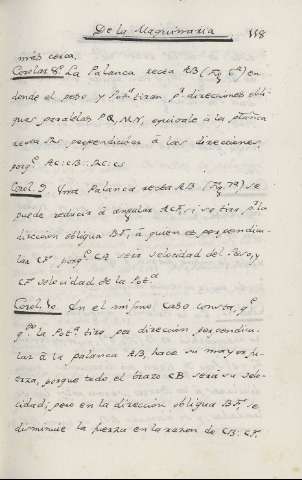 De la Maquinaria 118
más cerca.
Corolar. 8º. La Palanca recta AB (Fig. 6ª) en
donde el peso y Potª tiran pr direcciones obli-
quas paralelas PQ, MN, equivale à la planca
recta RS perpendicular à las direcciones,
porqe AC:CB::RC:CS
Corol. 9. Una Palanca recta AB (Fig. 7ª) se
puede reducir à angular ACF, si se tira pr la
dirección obliqua BF, à quien es perpendicu-
lar CF porqe CA será velocidad del Peso, y
CF velocidad de la Potª
Corol. 10. En el mismo Caso consta, qe
qdo la Potª tira por dirección perpendicu-
lar à la palanca AB, hace su mayor fu-
erza, porque todo el brazo CB será su velo-
cidad; pero en la dirección obliqua BF, se
disminuie la fuerza en la razon de CB:CF.